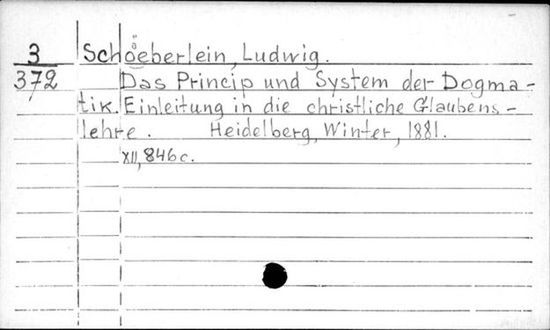 3 Schöeberlein, Ludwig.
372 Das Princip und System der Dogma-
tik. Einleitung in die christliche Glaubens-
lehre. Heidelberg, Winter, 1881.
XII, 846 c.